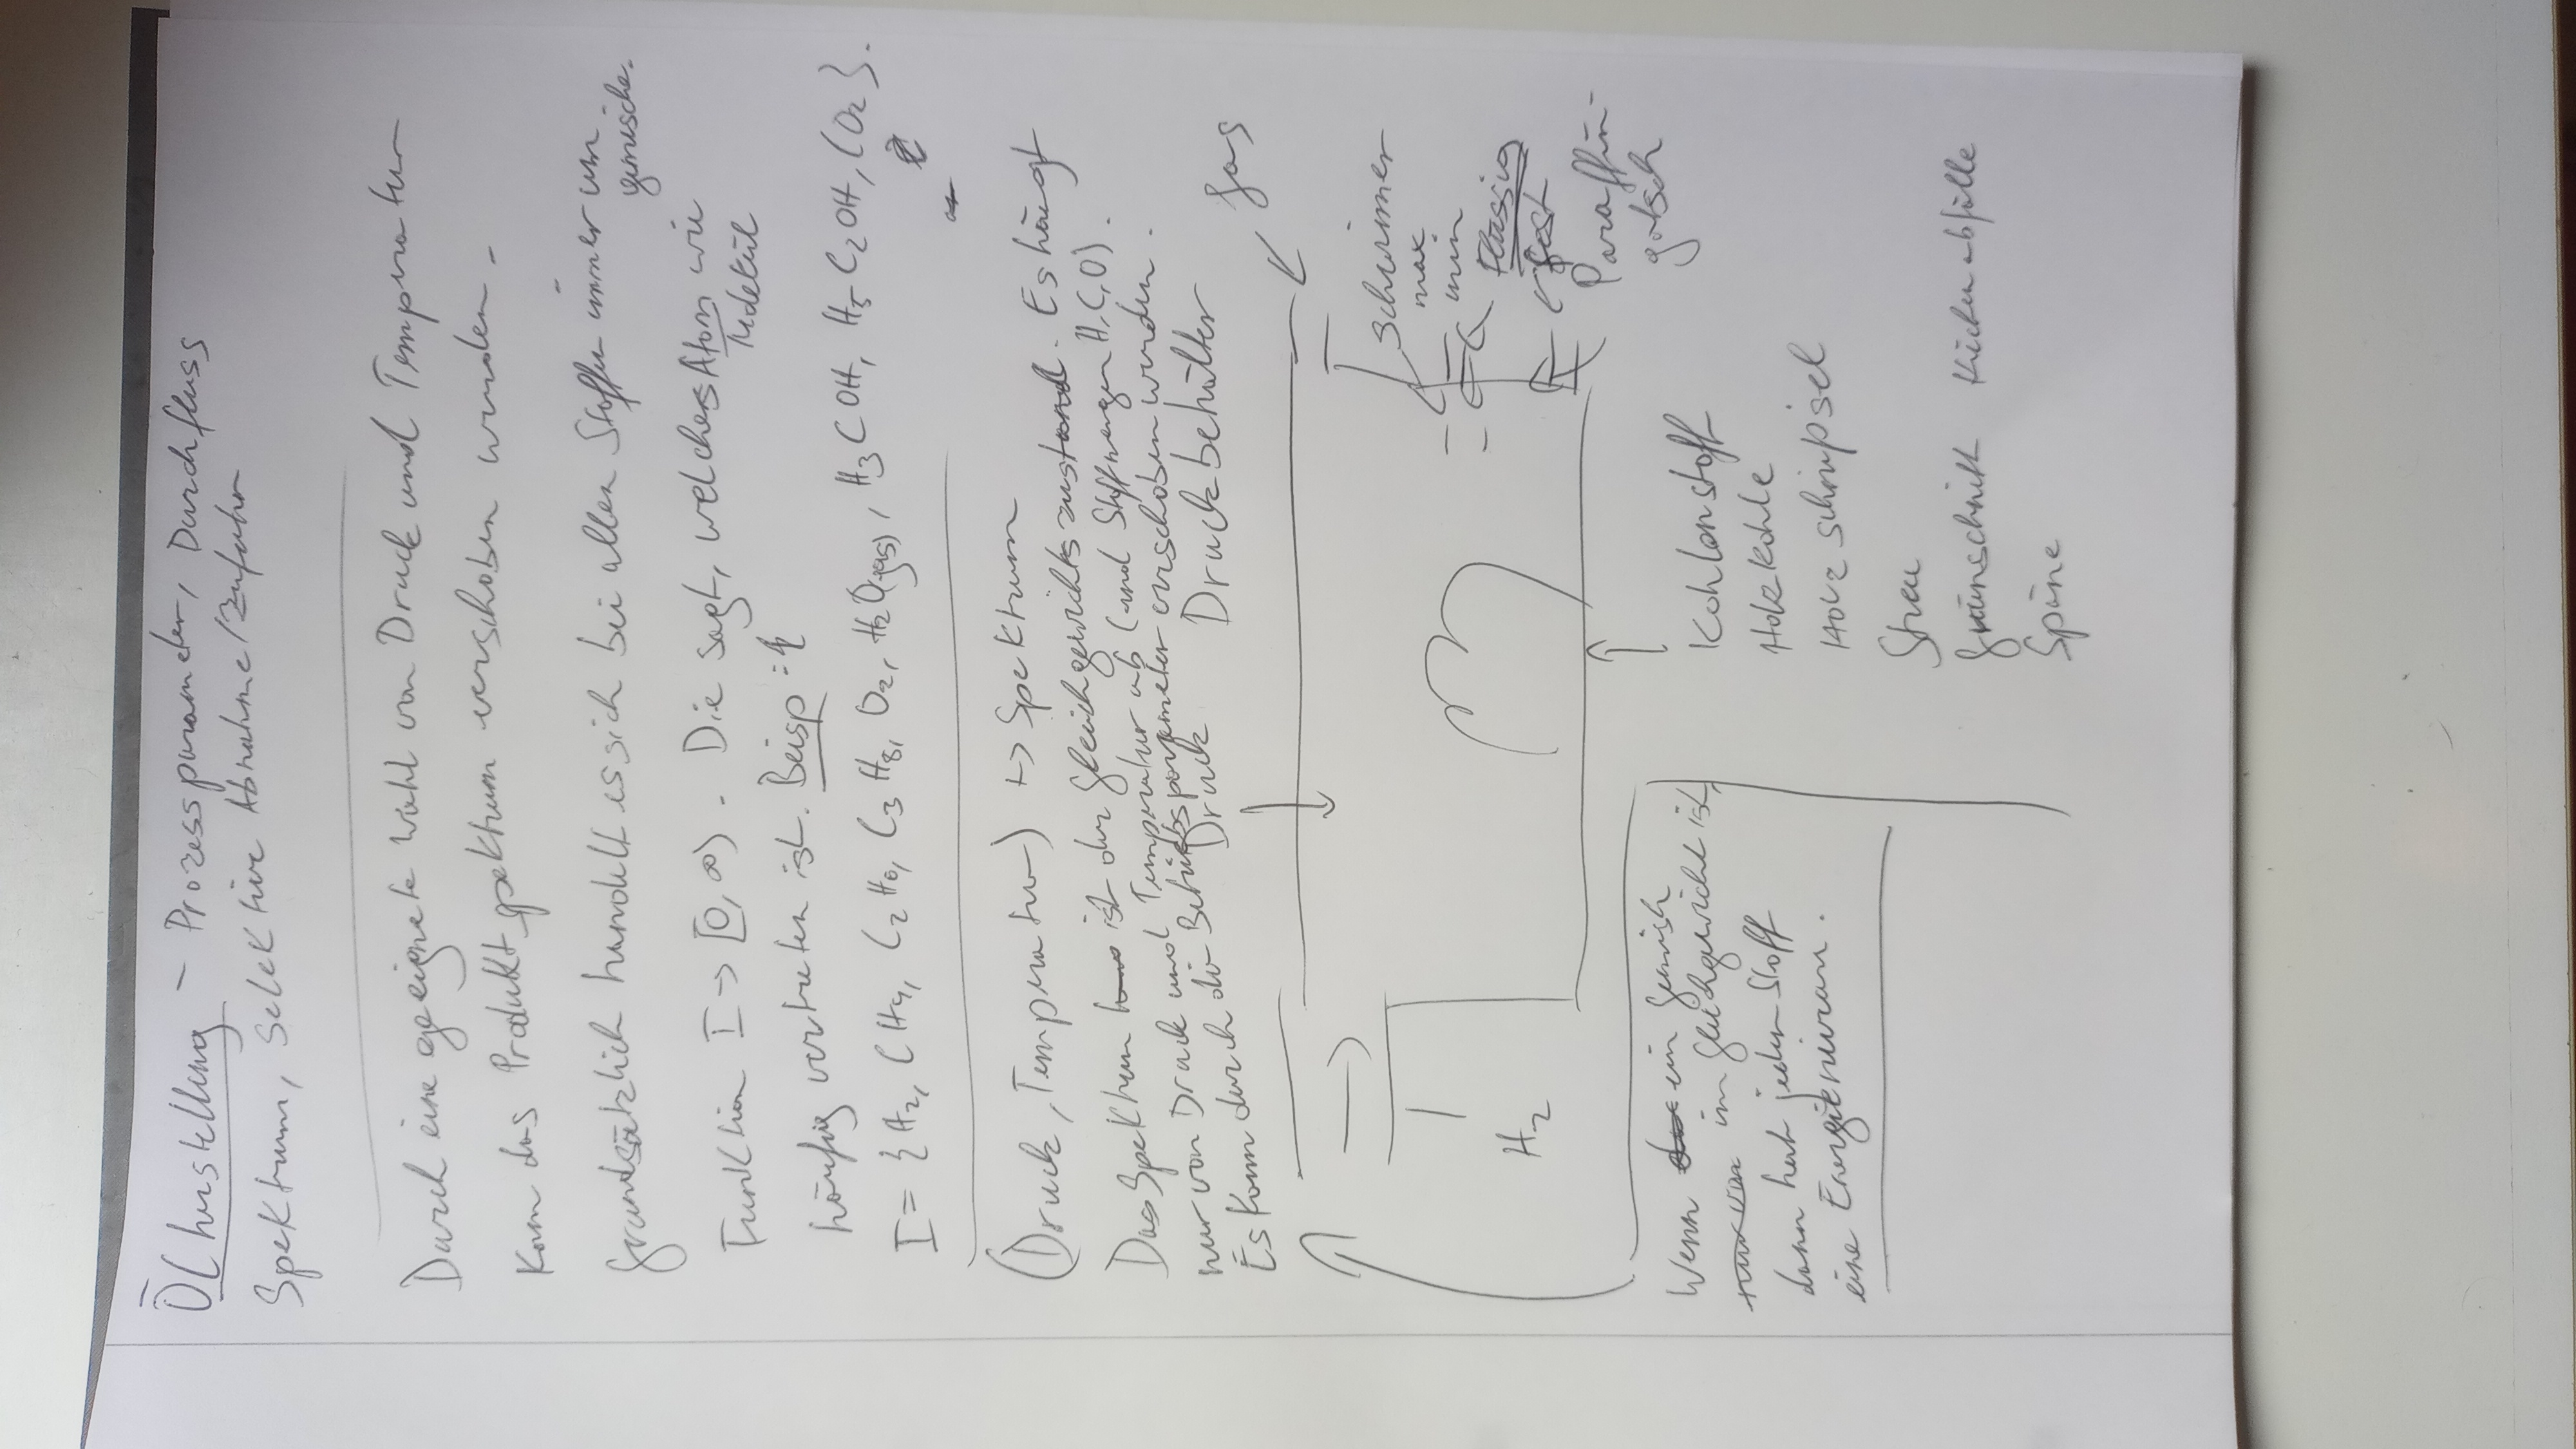 Ölherstellung - Prozessparameter, Durchfluss
Spektrum, Selektive Abnahme/Zufuhr
Durch eine geeignete Wahl von Druck und Temperatur
Kann das Produktspektrum verschoben werden.
Grundsätzlich handelt es sich bei allen Stoffen immer um
gemische.
Funktion I → [0, ∞). Die sagt, welches Atom wie
Molekül
häufig vertreten ist. Beisp:
I = { H2, CH4, C2H6, C3H8, O2, H2O(gas), H3COH, H5C2OH, CO2 }.
(Druck, Temperatur) ↦ Spektrum
Das Spektrum ist der Gleichgewichtszustand. Es hängt
nur von Druck und Temperatur ab (und Stoffmengen H, C, O).
Es Kann durch die Betriebsparameter verschoben werden.
Druck Druckbehälter
Gas
Schwimmer
max
min
Flüssig
H2
fest
Paraffin-
gatsch
Wenn ein Gemisch
im Gleichgewicht ist,
dann hat jeder Stoff
eine Energieniveau.
Kohlenstoff
Holzkohle
Holzschnipsel
Streu
Grünschnitt Küchenabfälle
Späne